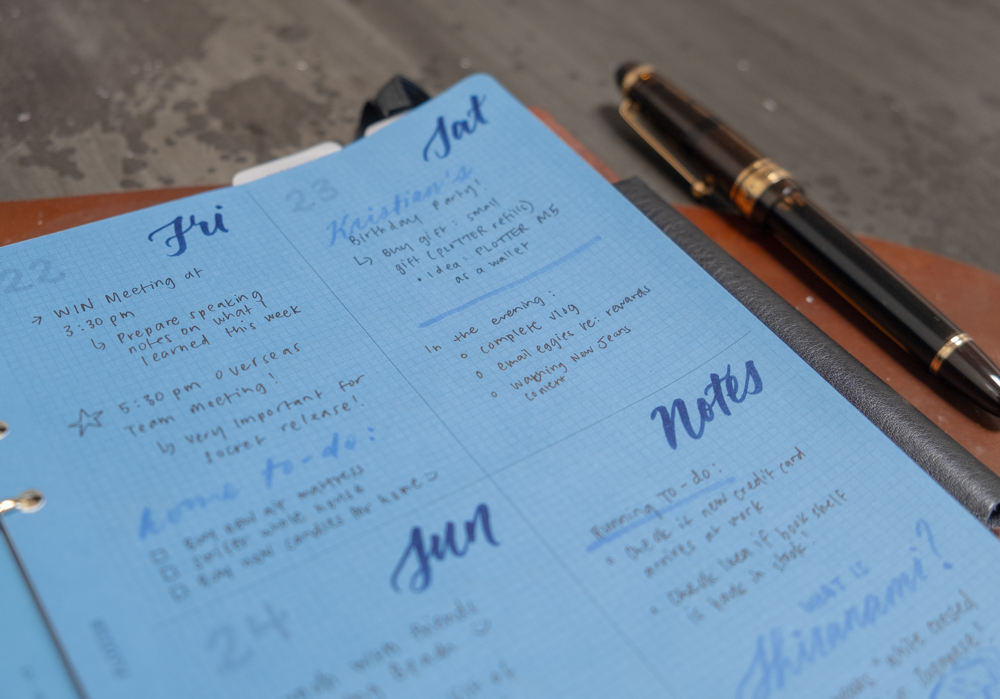 Fri
22
→ WIN Meeting at
3:30 pm
↳ Prepare speaking
notes on what I
learned this week
☆ 5:30 pm overseas
Team meeting!
↳ very important for
secret release!
home to-do:
□ Buy new air mattress
□ Swiffer whole house
□ Buy new candles for home
Sat
23
Kristian's
Birthday Party!
↳ Buy gift: small
gift (PLOTTER refills)
• Idea: PLOTTER M5
as a wallet
In the evening:
o complete vlog
o email eggies re: rewards
o Watching New Jeans
content
Sun
24
with friends
Notes
Running TO-do:
• Check if new credit card
arrives at work
• Check when if book shelf
is back in stock!
WHAT IS
Shiranami?